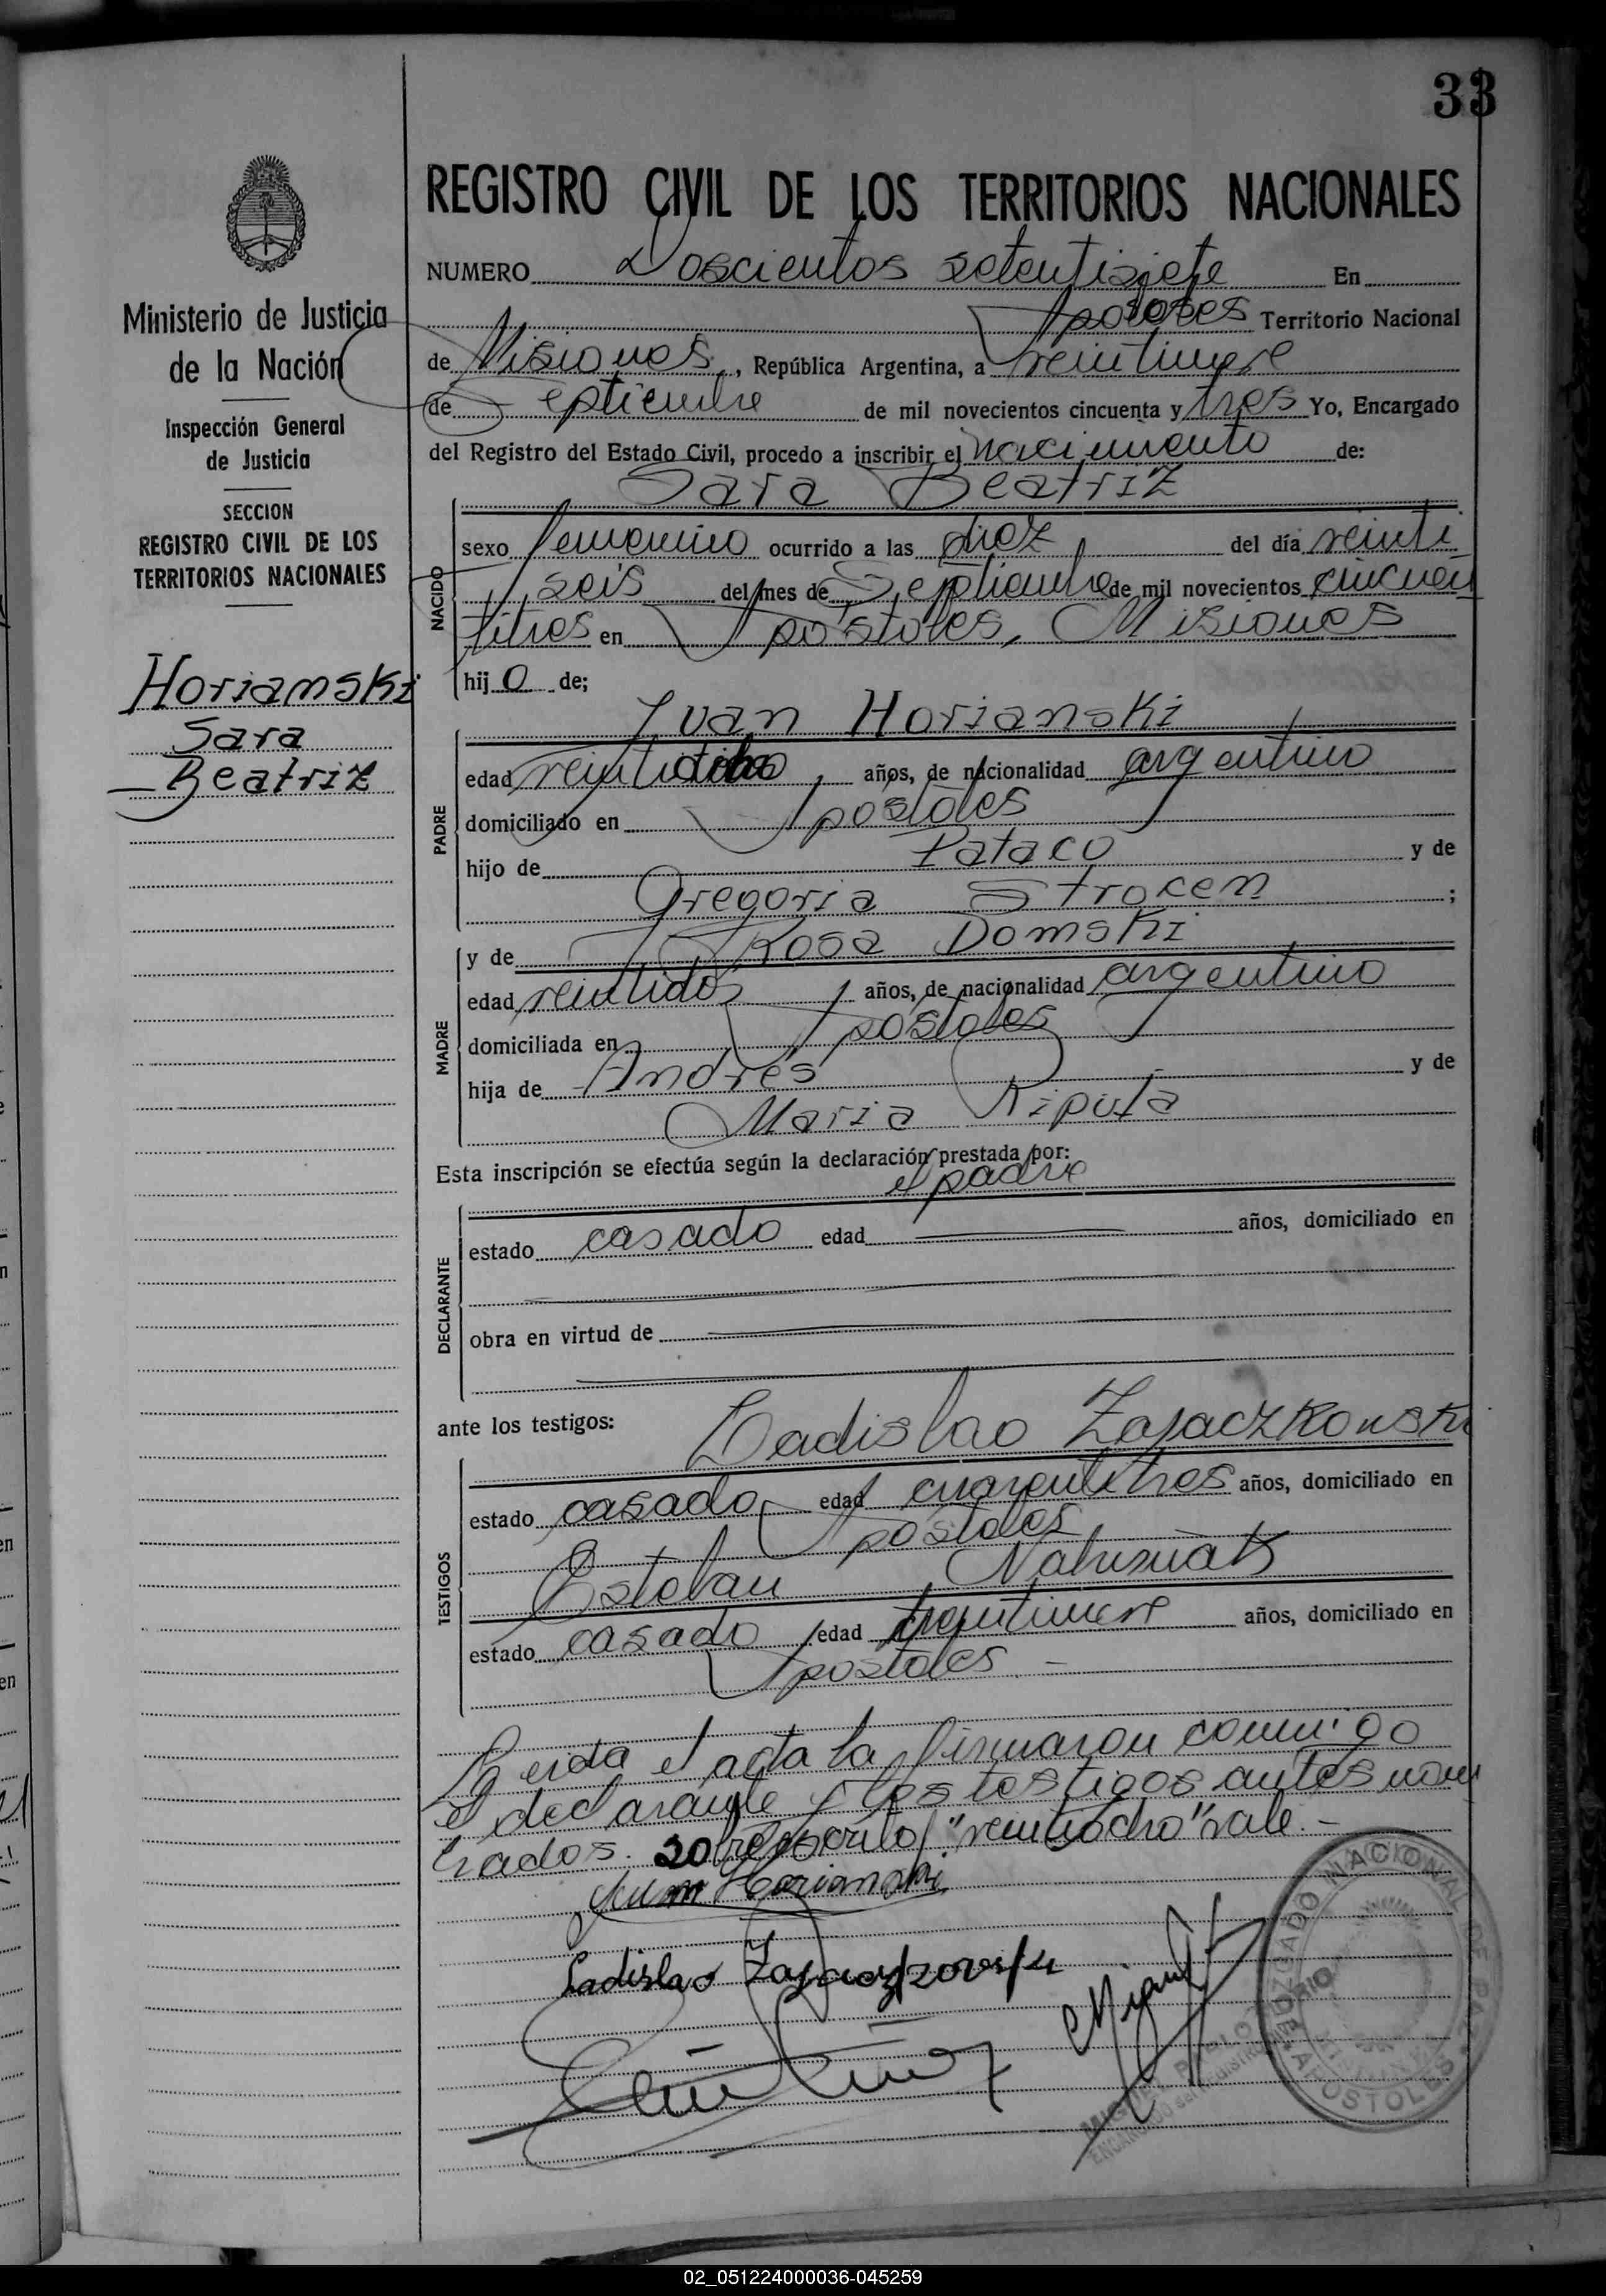 33
REGISTRO CIVIL DE LOS TERRITORIOS NACIONALES
NUMERO Doscientos setentisiete En
Apostoles Territorio Nacional
de Misiones, República Argentina, a veintinueve
de Septiembre de mil novecientos cincuenta y tres Yo, Encargado
del Registro del Estado Civil, procedo a inscribir el nacimiento de:
Sara Beatriz
Ministerio de Justicia
de la Nación
Inspección General
de Justicia
SECCION
REGISTRO CIVIL DE LOS
TERRITORIOS NACIONALES
Horianski
Sara
Beatriz
NACIDO
sexo femenino ocurrido a las diez del día veinti
seis del mes de Septiembre de mil novecientos cincuen
titres en Apóstoles, Misiones
hijo de;
Juan Horianski
PADRE
edad veintiocho años, de nacionalidad argentino
domiciliado en Apostoles
hijo de Pataco y de
Gregoria Strocen ;
MADRE
y de Rosa Domski
edad veintidos años, de nacionalidad argentino
domiciliada en Apóstoles
hija de Andrés y de
Maria Kiputa
Esta inscripción se efectúa según la declaración prestada por:
el padre
DECLARANTE
estado casado edad años, domiciliado en
obra en virtud de
ante los testigos: Ladislao Zajaczkowski
TESTIGOS
estado casado edad cuarentitres años, domiciliado en
Apostoles
Esteban
estado casado edad treintinueve años, domiciliado en
Apostoles. -
Leida el acta la firmaron conmigo
el declarante y los testigos antes nom
brados. Sobreescrito "veintiocho" vale. -
Juan Horianski
Ladislao Zajaczkowski
JUZGADO NACIONAL DE PAZ
APOSTOLES
02_051224000036-045259